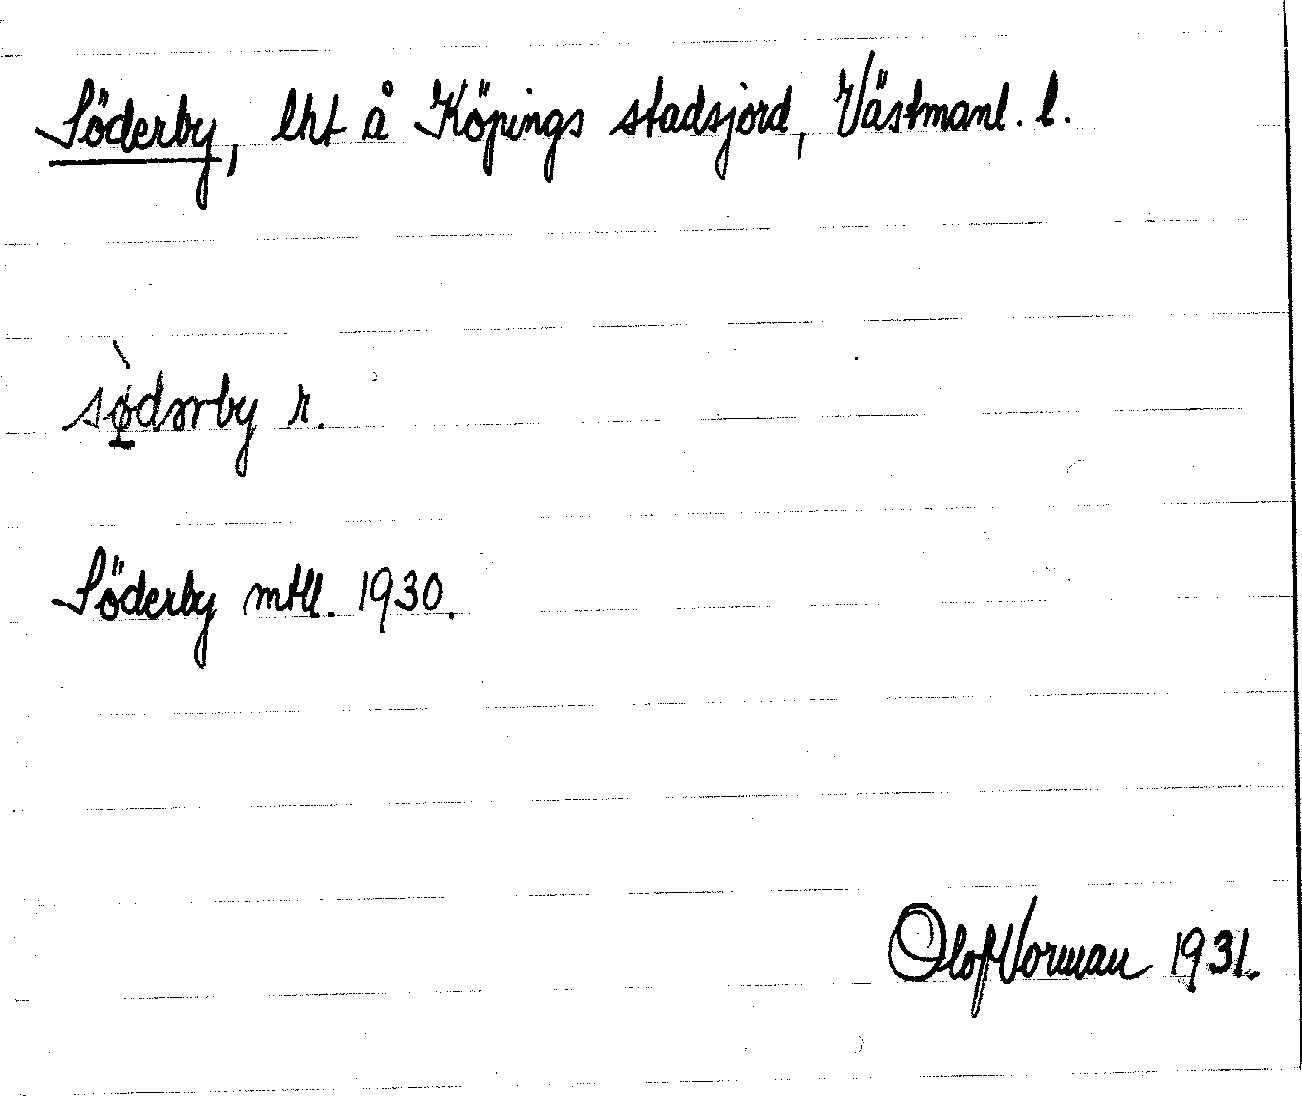 Söderby, lht å Köpings stadsjord, Västmanl. l.
sø̀dərby r.
Söderby mtll. 1930.
Olof Vorman 1931.